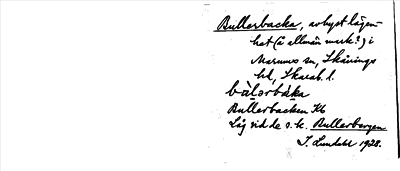 Bullerbacka, avbyst lägen-
het (å allmän mark?) i
sn, Skånings
hd, Skarab. l.
bälərbàka
Bullerbacken Kb
Låg vid de s. k. Bullerbergen
J. Lundahl 1928.